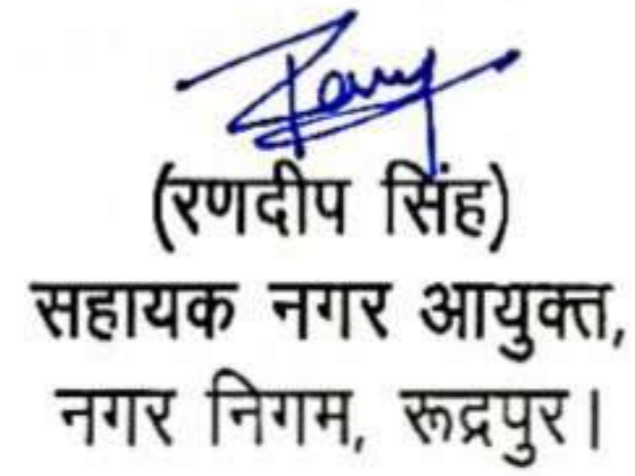 (रणदीप सिंह)
सहायक नगर आयुक्त,
नगर निगम, रूद्रपुर।